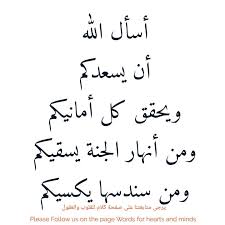 أسأل الله
أن يسعدكم
ويحقق كل أمانيكم
ومن أنهار الجنة يسقيكم
ومن سندسها يكسيكم
يرجى متابعتنا على صفحة كلام للقلوب والعقول
Please Follow us on the page Words for hearts and minds